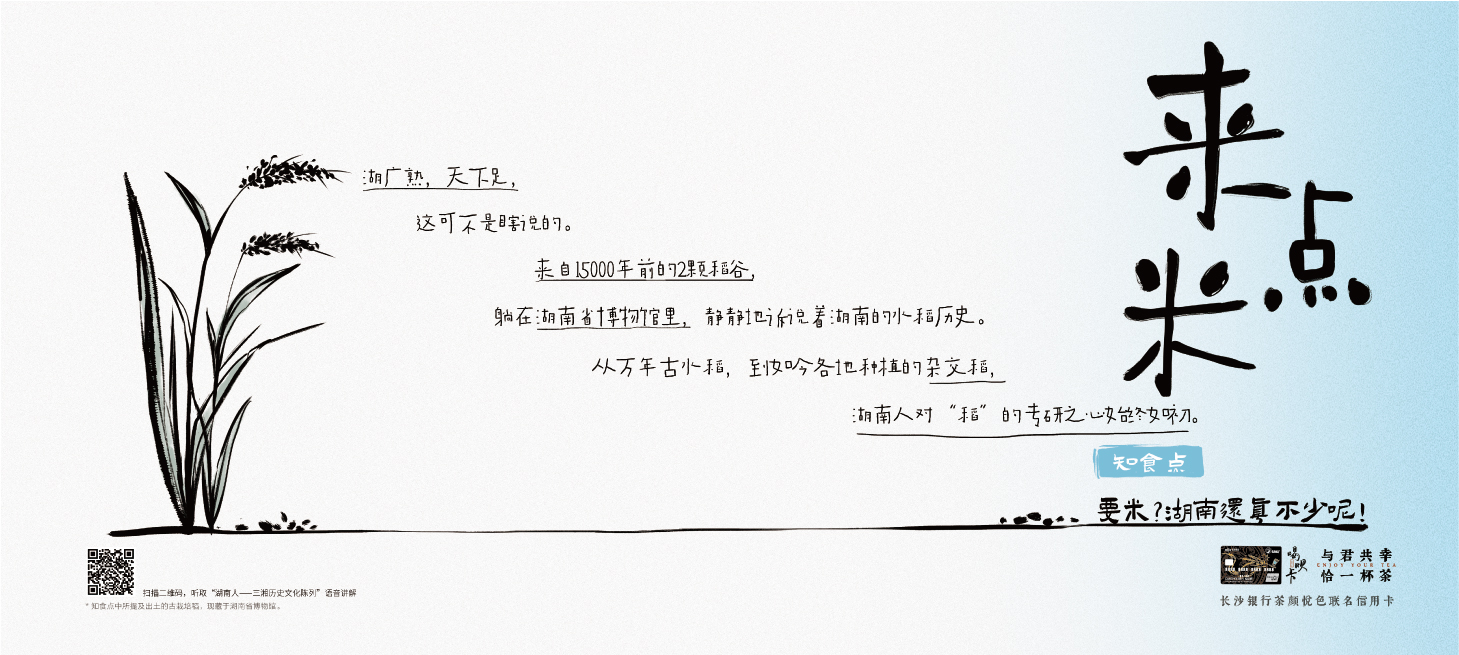 来点米
湖广熟，天下足，
这可不是瞎说的。
来自15000年前的2颗稻谷，
躺在湖南省博物馆里，静静地诉说着湖南的水稻历史。
从万年古水稻，到如今各地种植的杂交稻，
湖南人对“稻”的专研之心始终如初。
知食点
要米？湖南還真不少呢！
扫描二维码，听取“湖南人——三湘历史文化陈列”语音讲解
* 知食点中所提及出土的古栽培稻，现藏于湖南省博物馆。
与君共幸
ENJOY YOUR TEA
恰一杯茶
长沙银行茶颜悦色联名信用卡